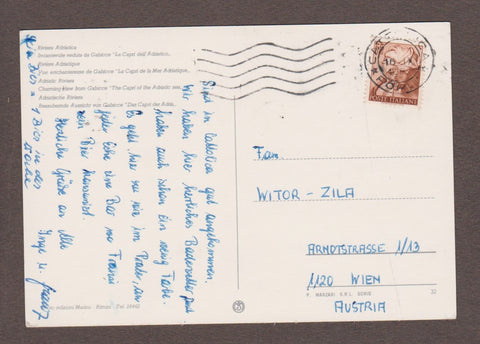 Riviera Adriatica
Incantevole veduta da Gabicce "La Capri dell'Adriatico"
Riviera Adriatique
Vue enchanteresse de Gabicce "La Capri de la Mer Adriatique"
Adriatic Riviera
Charming View from Gabicce "The Capri of the Adriatic sea"
Adriatische Riviera
Bezaubernde Aussicht von Gabicce "Das Capri der Adria"
Sind in Cattolica gut angekommen.
Wir haben hier herrliches Badewetter und
haben auch schon ein wenig Farbe.
Es geht hier zu wie im Prater, an
jeder Ecke eine Bar wo Franzi
sein Bier
Herzliche Grüße an Alle
Inge u. Franz
1 Bier in der
Woche
POSTE ITALIANE
Fam.
WITOR-ZILA
ARNDTSTRASSE 1/13
1120 WIEN
AUSTRIA
edizioni Marino - Rimini - Tel.
P. MARZARI S.R.L. SCHIO
32